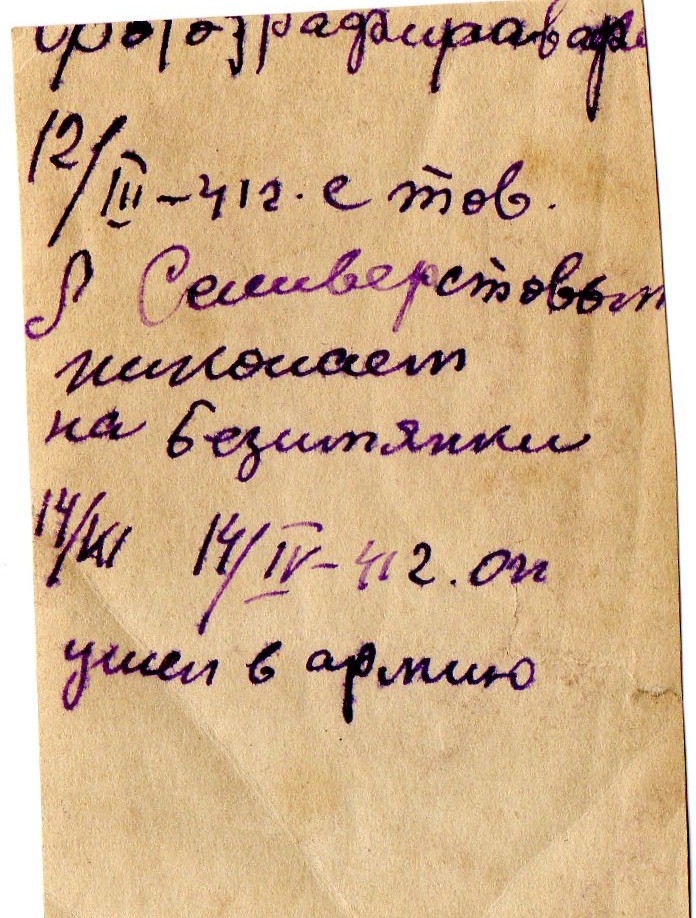 фотографиравал
12/III-41г. с тов.
Селиверстовым
николаем
на безитянки
14/IV 14/IV-41г. он
ушел в армию